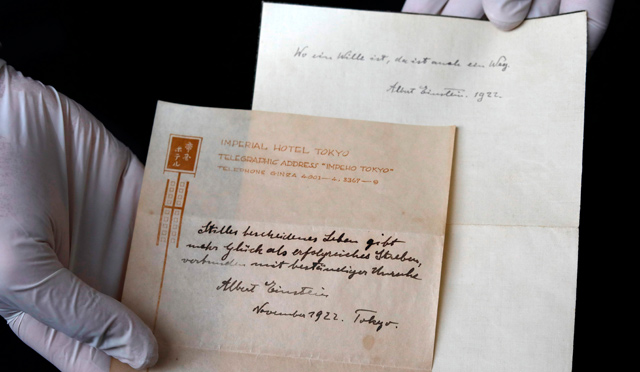 Wo ein Wille ist, da ist auch ein Weg
Albert Einstein. 1922.
ホテル
IMPERIAL HOTEL TOKYO
TELEGRAPHIC ADDRESS "IMPEHO TOKYO"
TELEPHONE GINZA
Stilles bescheidenes Leben gibt
mehr Glück als erfolgreiches Streben,
verbunden mit beständiger Unruhe
Albert Einstein
November 1922. Tokyo.